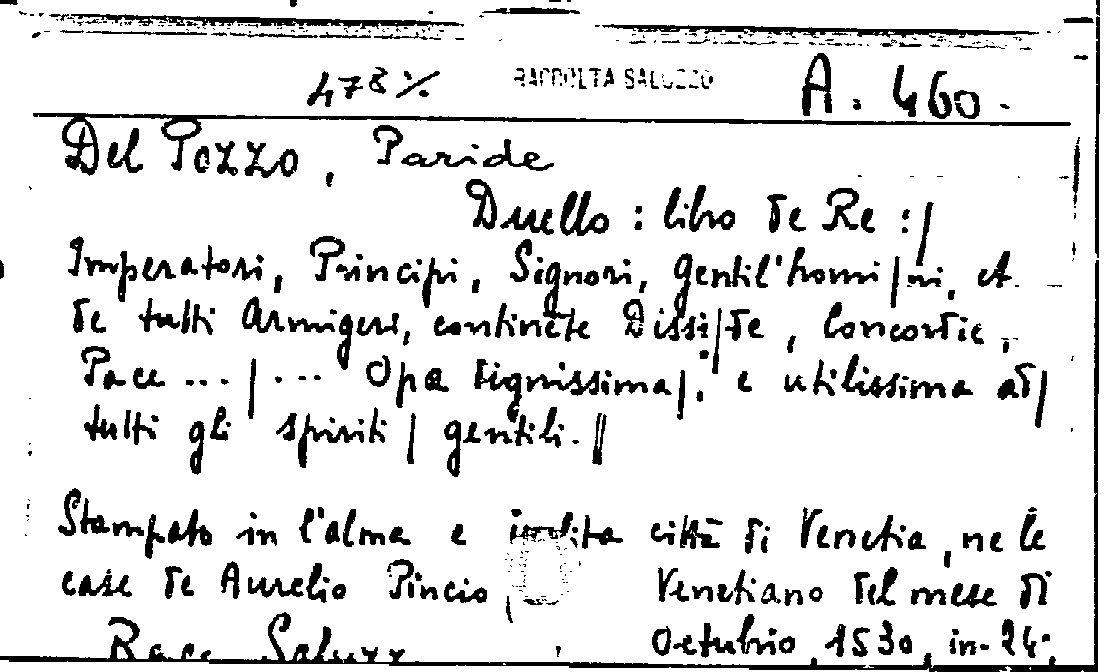 478% RACCOLTA SALUZZO A. 460.
Del Pozzo, Paride
Duello : libro de Re :/
Imperatori, Principi, Signori, Gentil'homi/ni, et
de tutti Armigeri, continēte Dissi/de, Concordie,
Pace ... / ... Opa dignissima/. e utilissima ad/
tutti gli spiriti / gentili. //
Stampato in l'alma e inclita città di Venetia, ne le
case de Aurelio Pincio Venetiano del mese di
Racc. Saluzz. Octubrio, 1530, in-24°.